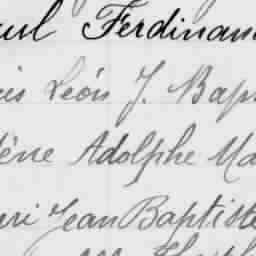 aul Ferdinan
uis Léon J. Bap
lène Adolphe Ma
nri Jean Baptiste